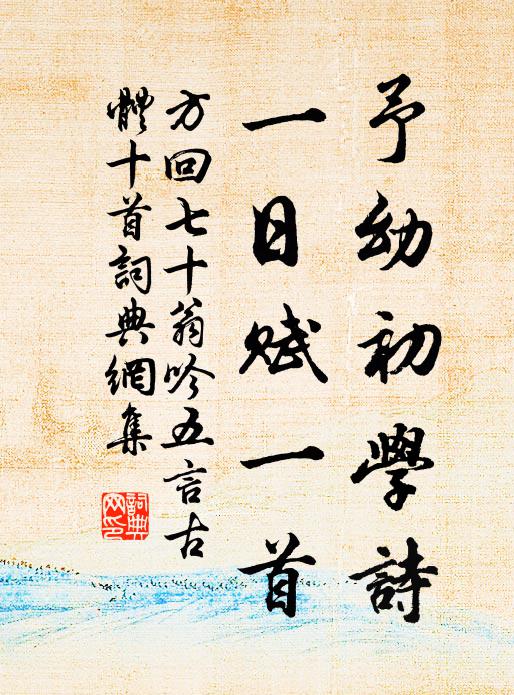 予幼初學詩
一日賦一首
方回七十翁吟五言古
體十首詞典網集
詞典
网印